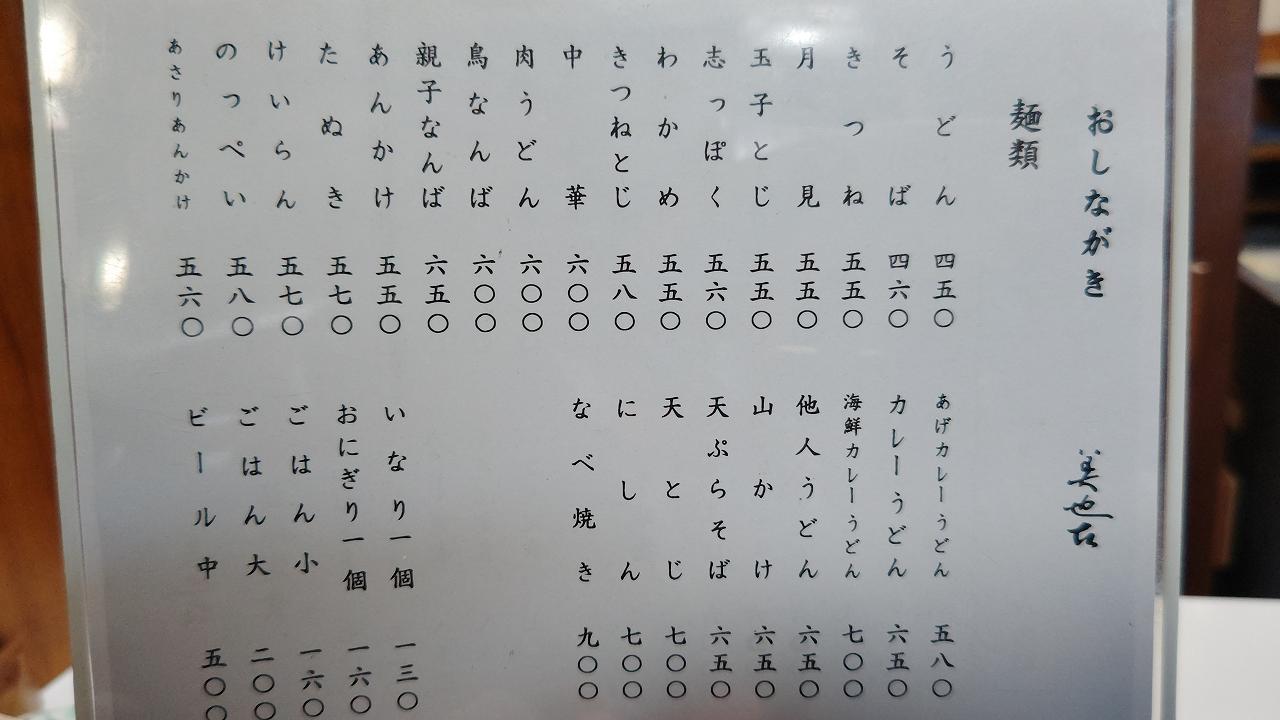 おしながき
美也古
麺類
うどん 四五〇
そば 四六〇
きつね 五五〇
月見 五五〇
玉子とじ 五五〇
志っぽく 五六〇
わかめ 五五〇
きつねとじ 五八〇
中華 六〇〇
肉うどん 六〇〇
鳥なんば 六〇〇
親子なんば 六五〇
あんかけ 五五〇
たぬき 五七〇
けいらん 五七〇
のっぺい 五八〇
あさりあんかけ 五六〇
あげカレーうどん 五八〇
カレーうどん 六五〇
海鮮カレーうどん 七〇〇
他人うどん 六五〇
山かけ 六五〇
天ぷらそば 六五〇
天とじ 七〇〇
にしん 七〇〇
なべ焼き 九〇〇
いなり一個 一三〇
おにぎり一個 一六〇
ごはん小 一六〇
ごはん大 二〇〇
ビール中 五〇〇